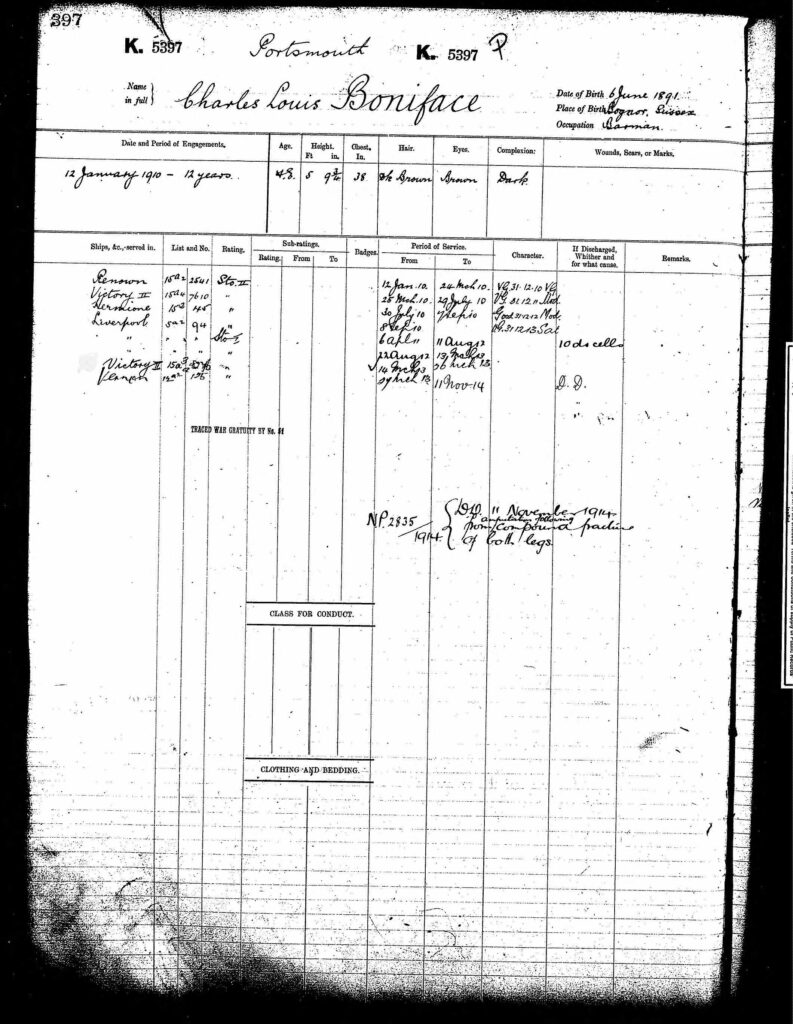 397
K. 5397 Portsmouth K. 5397 P
Name in full } Charles Louis Boniface
Date of Birth 6 June 1891.
Place of Birth Bognor, Sussex
Occupation Carman.
Date and Period of Engagements. Age. Height. Ft in. Chest, In. Hair. Eyes. Complexion: Wounds, Scars, or Marks.
12 January 1910 – 12 years. 5 38 Dk Brown Brown Dark
Ships, &c., served in. List and No. Rating. Sub-ratings. Rating. From To Badges. Period of Service. From To Character. If Discharged, Whither and for what cause. Remarks.
Renown 15a2 2541 Sto. II 12 Jan. 10. 24 Mch 10. VG 31.12.10
Victory II 15a4 7610 " 25 Mch 10. 29 July 10 VG 31.12.11
Hermione 15a2 45 " 30 July 10 7 Sep 10 Good 31.12.12 Mod
Liverpool 5a2 94 " 8 Sep 10 31.12.13 Sat
" " " " Sto I 6 Apl 11 11 Aug 12 10 ds cells
22 Aug 12 13 Mch 13
Victory II 15a3 " 14 Mch 13 26 Mch 13
" 27 Mch 13 11 Nov. 14 D.D.
"
TRACED WAR GRATUITY BY No.
NP 2835/1914 { D.D. 11 November 1914
amputation following
from compound fracture
of both legs.
CLASS FOR CONDUCT.
CLOTHING AND BEDDING.